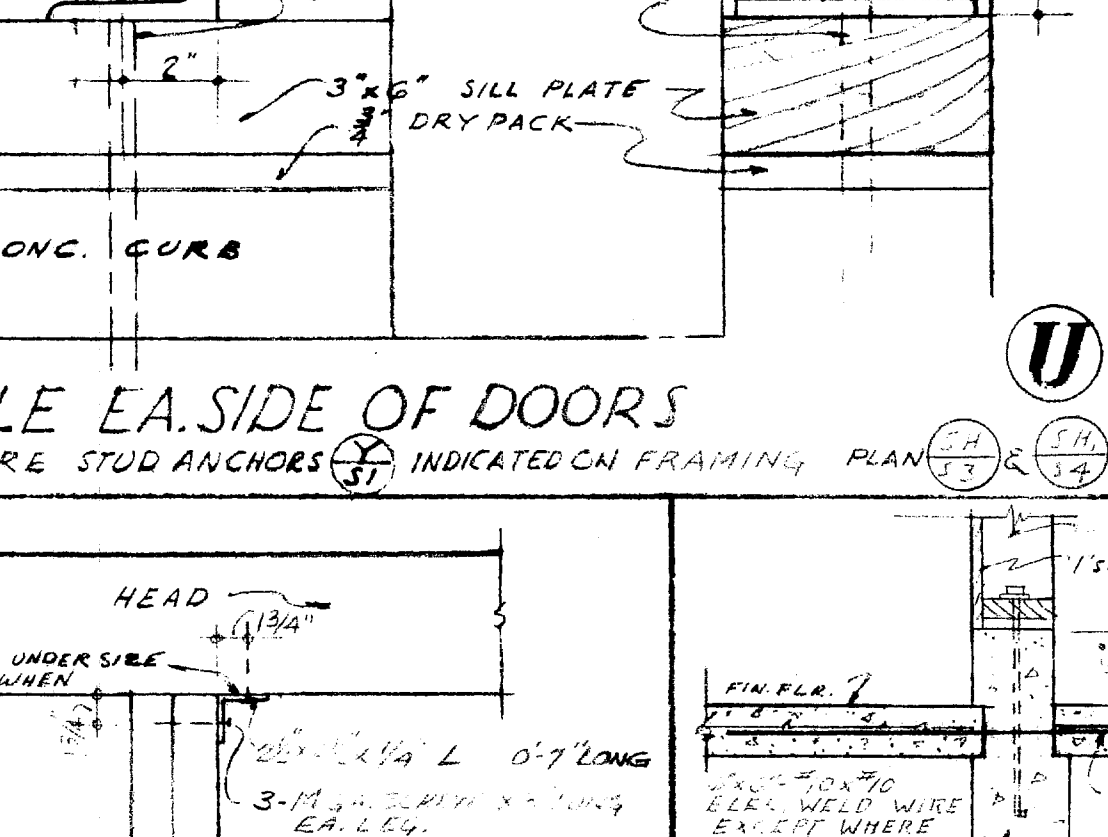 2"
3"x6" SILL PLATE
3/4" DRY PACK
ONC. CURB
U
LE EA. SIDE OF DOORS
RE STUD ANCHORS Y/S1 INDICATED ON FRAMING PLAN SH/S3 & SH./S4
HEAD
1 3/4"
UNDER SIZE
WHEN
FIN. FLR.
1/4 L 0'-7" LONG
LONG
EA. LEG.
#10x#10
ELEC. WELD WIRE
EXCEPT WHERE